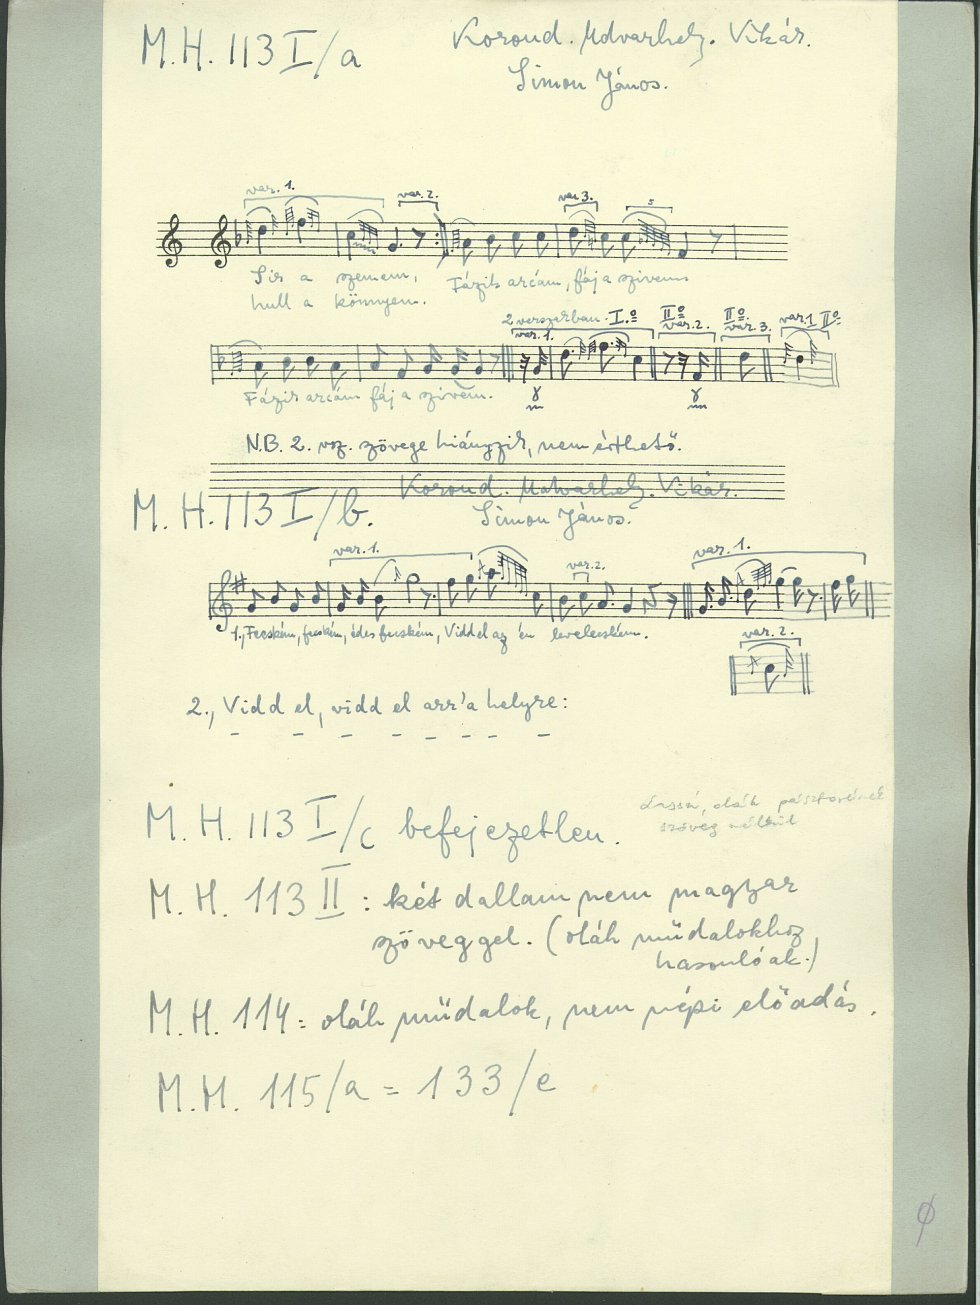 M. H. 113 I/a
Korond. Udvarhely. Vikár.
Simon János.
var. 1.
var. 2.
var 3.
5
Sir a szemem,
Fázik arcám, fáj a szivem
hull a könnyem.
2 verszakban I.º
var. 1.
IIº
var. 2.
IIº
var. 3.
var. 1 IIº
Fázik arcám fáj a szivem.
N.B. 2. vsz. szövege hiányzik, nem érthető.
Korond. Udvarhely. Vikár.
M. H. 113 I/b.
Simon János.
var. 1.
var. 2.
var. 1.
1., Fecském, fecském, édes fecském, Vidd el az én levelecském.
var. 2.
2., Vidd el, vidd el arr'a helyre:
– – – – – – – –
M. H. 113 I/c befejezetlen.
oláh
szöveg nélkül
M. H. 113 II : két dallam nem magyar
szöveggel. (oláh műdalokhoz
hasonlóak.)
M. H. 114 = oláh műdalok, nem népi előadás.
M. H. 115/a = 133/e
Ø